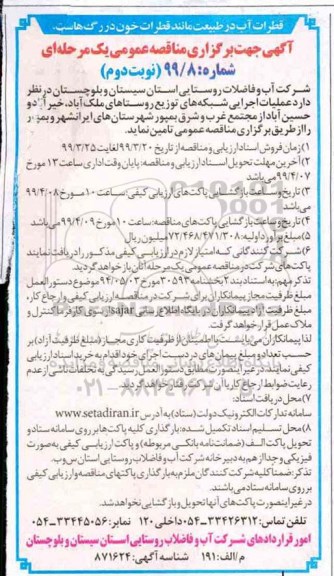 قطرات آب در طبیعت مانند قطرات خون در رگ هاست.
آگهی جهت برگزاری مناقصه عمومی یک مرحله‌ای
شماره: ۹۹/۸ (نوبت دوم)
شرکت آب و فاضلاب روستایی استان سیستان و بلوچستان در نظر
دارد عملیات اجرایی شبکه‌های توزیع روستاهای ملک‌آباد، خیرآباد و
حسین آباد از مجتمع غرب و شرق بمپور شهرستان های ایرانشهر و بمپور
را از طریق برگزاری مناقصه عمومی تامین نماید.
۱) زمان فروش اسناد ارزیابی و مناقصه از تاریخ ۹۹/۳/۲۰ لغایت ۹۹/۳/۲۵
۲) آخرین مهلت تحویل اسناد ارزیابی و مناقصه: پایان وقت اداری ساعت ۱۳ مورخ
۹۹/۴/۰۷ می باشد
۳) تاریخ و ساعت بازگشایی پاکت‌های ارزیابی کیفی: ساعت ۱۰ مورخ ۹۹/۴/۰۸
می باشد
۴) تاریخ و ساعت بازگشایی پاکت‌های مناقصه: ساعت ۱۰ مورخ ۹۹/۴/۰۹ می باشد
۵) مبلغ برآورد اولیه: ۷۲/۴۶۸/۴۷۱/۳۰۸ میلیون ریال
۶) شرکت کنندگانی که امتیاز لازم در ارزیابی کیفی مذکور را دریافت نمایند
پاکت‌های شرکت در مناقصه عمومی یک مرحله آنان باز خواهد گردید.
تذکر مهم: به استناد بند ۲ بخشنامه ۳۰۵۹۳ مورخ ۹۴/۰۵/۰۳ موضوع دستورالعمل
مبلغ ظرفیت مجاز پیمانکاران برای شرکت در مناقصه، ارزیابی کیفی و ارجاع کار،
مبلغ ظرفیت آزاد پیمانکاران در پایگاه اطلاع رسانی sajar از سوی کارفرما کنترل و
ملاک عمل قرار خواهد گرفت.
لذا پیمانکاران می‌بایست با اطمینان از ظرفیت کاری مجاز، (مبلغ ظرفیت آزاد) بر
حسب تعداد و مبلغ پیمان های در دست اجرای خود اقدام به خرید اسناد ارزیابی
کیفی نمایند در غیر اینصورت مطابق دستورالعمل رسیدگی به تخلفات ناشی از عدم
رعایت ضوابط ارجاع کار با آن شرکت رفتار خواهد گردید.
۷) محل دریافت اسناد:
سامانه تدارکات الکترونیک دولت (ستاد) به آدرس www.setadiran.ir
۸) محل تسلیم اسناد تکمیل شده: بارگذاری کلیه پاکت ها بر روی سامانه ستاد و
تحویل پاکت الف (ضمانت‌نامه بانکی مربوطه) و پاکت ارزیابی کیفی به صورت
فیزیکی و جدا از هم به دبیرخانه شرکت آب و فاضلاب روستایی استان س وب.
تذکر: ضمنا کلیه شرکت کنندگان ملزم به بارگذاری پاکتهای مناقصه و ارزیابی کیفی
بر روی سامانه ستاد می باشند.
در غیر اینصورت پاکت های آنها تحویل و بازگشایی نخواهد شد.
تلفن تماس: ۳۳۴۲۶۳۱۲-۰۵۴ داخلی ۱۲۰ نمابر: ۳۳۴۴۵۰۵۶-۰۵۴
امور قراردادهای شرکت آب و فاضلاب روستایی استان سیستان و بلوچستان
م/الف: ۱۹۱ شناسه آگهی: ۸۷۱۶۲۴